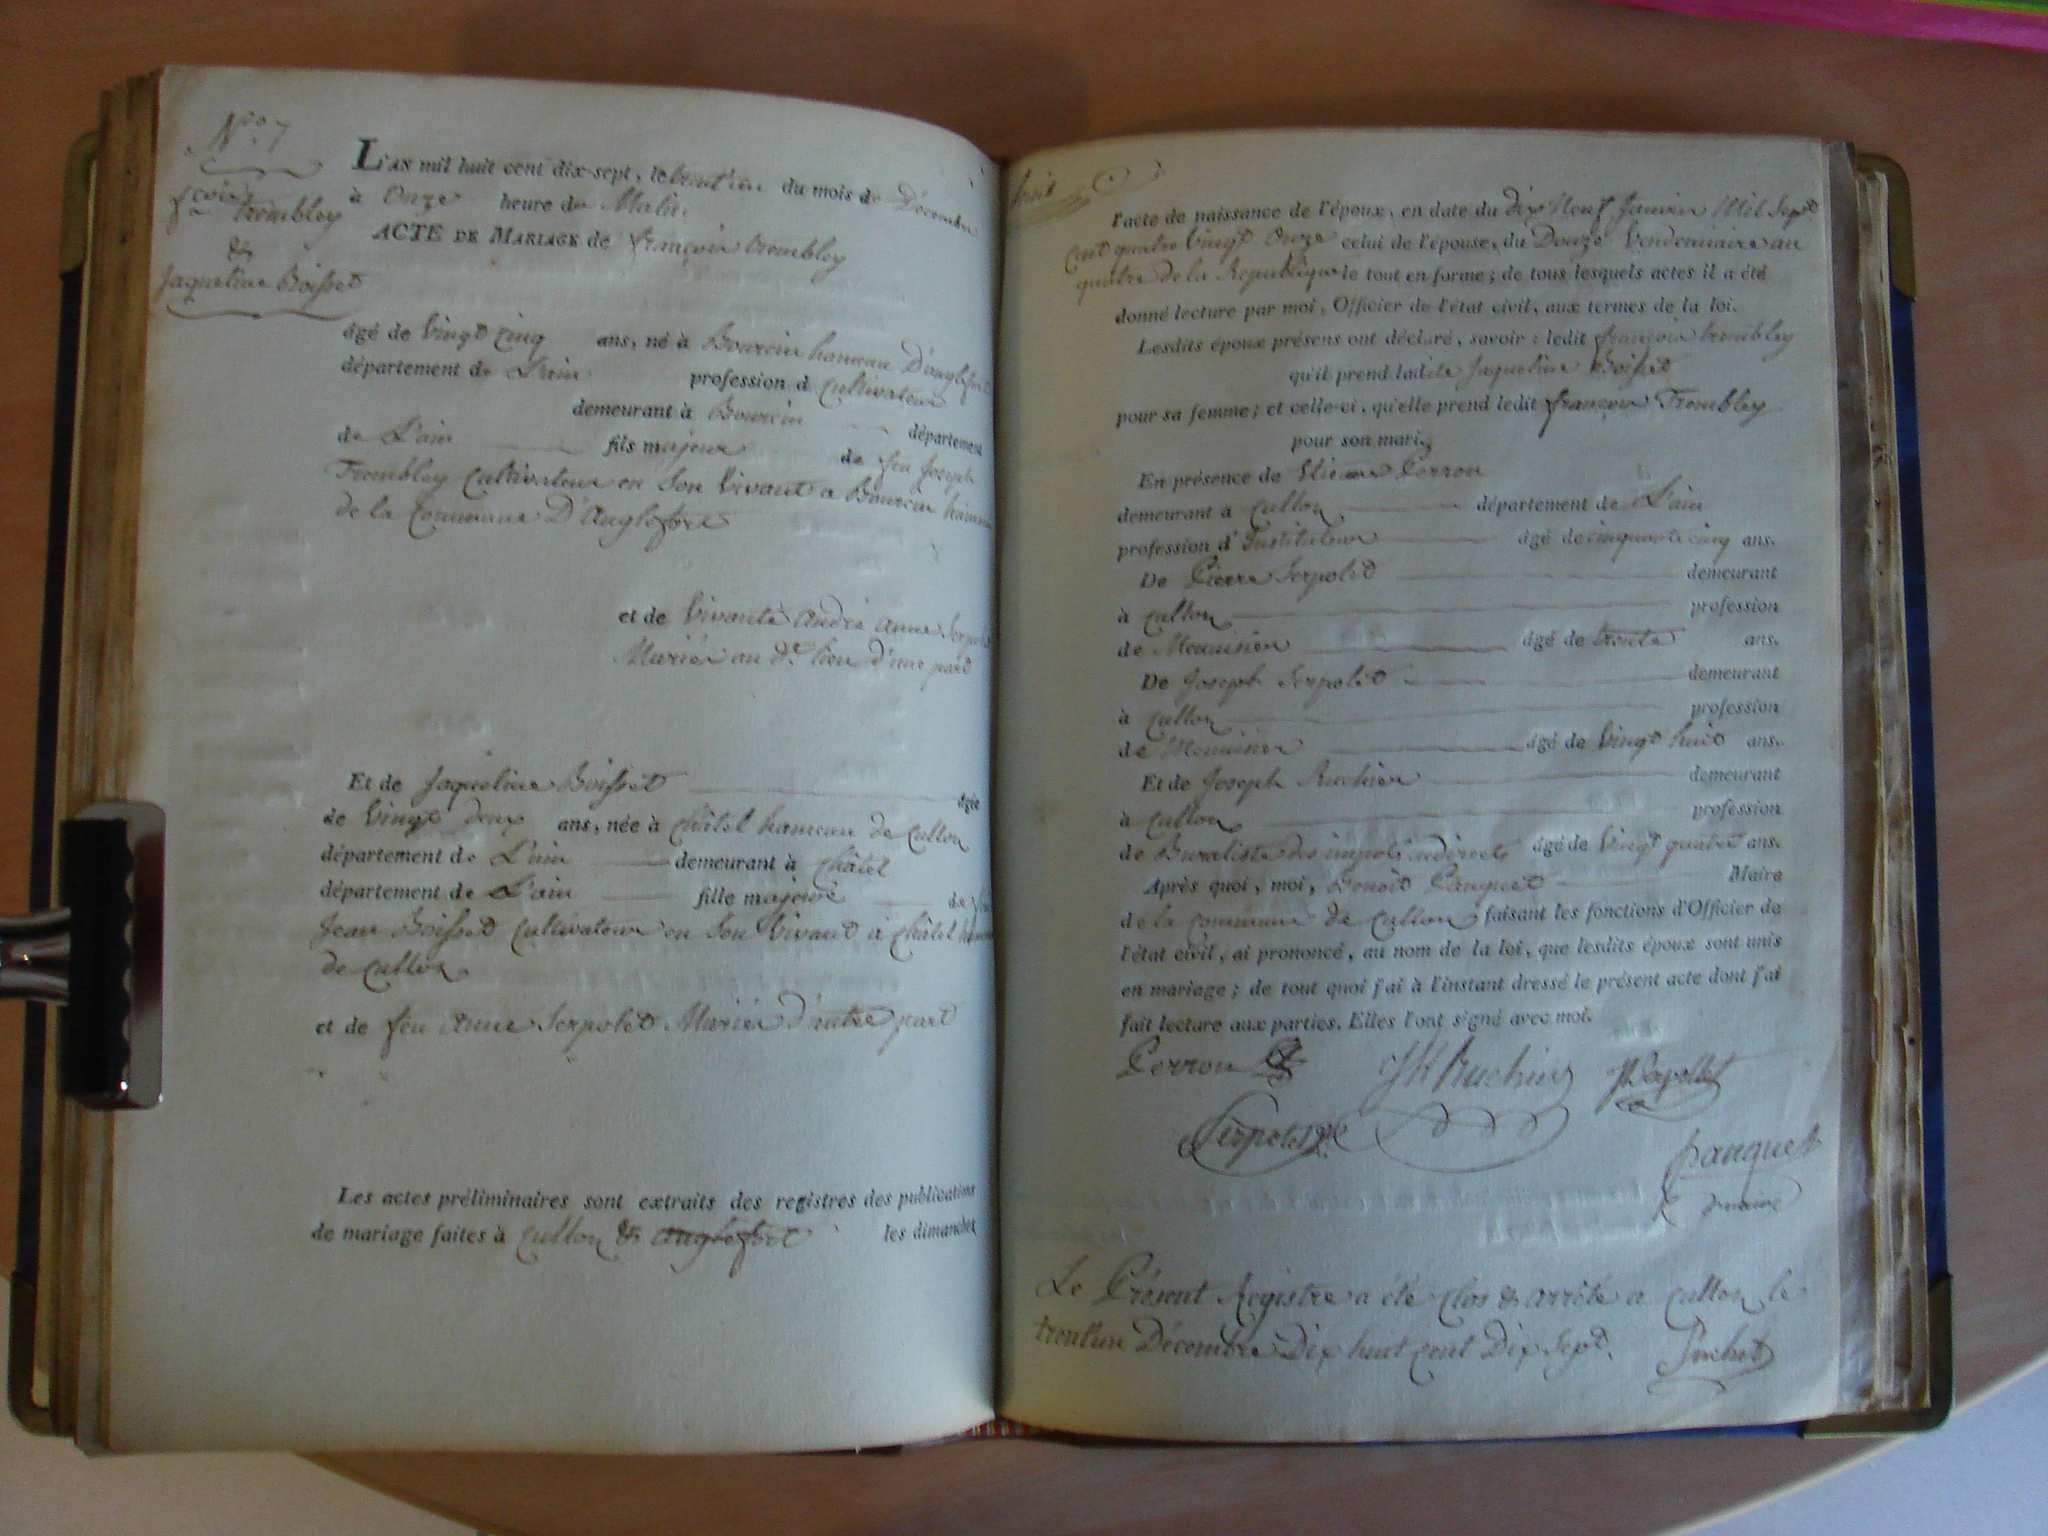 N.º 7
f.çois trombley
&
Jaqueline Boisset
L'AN mil huit cent dix-sept, le trent'un du mois de Décembre
à Onze heure du Matin.
ACTE DE MARIAGE de françois trombley
âgé de Vingt cinq ans, né à Bourcin hameau D'anglefort
département de L'ain profession d cultivateur
demeurant à Bourcin département
de L'ain fils majeur de feu Joseph
Trombley Cultivateur en Son Vivant a Bourcin hameau
de la Commune D'Anglefort
et de Vivante Andrée Anne Serpolet
Mariés au d.t lieu d'une part
Et de Jaqueline Boisset âgée
de Vingt deux ans, née à Châtel hameau de Culloz
département de L'ain demeurant à Châtel
département de L'ain fille majeure de feu
Jean Boisset Cultivateur en Son Vivant à Châtel hameau
de Culloz
et de feu Anne Serpolet Mariés D'autre part
Les actes préliminaires sont extraits des registres des publications
de mariage faites à Culloz & Anglefort les dimanches
l'acte de naissance de l'époux, en date du Dix Neuf Janvier Mil Sept
Cent quatre Vingt Onze celui de l'épouse, du Douze Vendemiaire an
quatre de la Republique le tout en forme; de tous lesquels actes il a été
donné lecture par moi, Officier de l'état civil, aux termes de la loi.
Lesdits époux présens ont déclaré, savoir: ledit françois trombley
qu'il prend ladite Jaqueline Boisset
pour sa femme; et celle-ci, qu'elle prend ledit françois Trombley
pour son mari,
En présence de Etienne Perron
demeurant à Culloz département de L'ain
profession d'Instituteur âgé de cinquante cinq ans.
De Pierre Serpolet demeurant
à Culloz profession
de Meunier âgé de trente ans.
De Joseph Serpolet demeurant
à Culloz profession
de Meunier âgé de Vingt huit ans.
Et de Joseph Ruchier demeurant
à Culloz profession
de Buraliste des impots indirects âgé de Vingt quatre ans.
Après quoi, moi, Benoît Panquet Maire
de la Commune de Culloz faisant les fonctions d'Officier de
l'état civil, ai prononcé, au nom de la loi, que lesdits époux sont unis
en mariage; de tout quoi j'ai à l'instant dressé le présent acte dont j'ai
fait lecture aux parties. Elles l'ont signé avec moi.
Perron Ruchier Serpollet
Serpolet
panquet
maire
Le Présent Registre a été Clos & arrêté a Culloz le
trent'un Décembre Dix huit Cent Dix Sept.